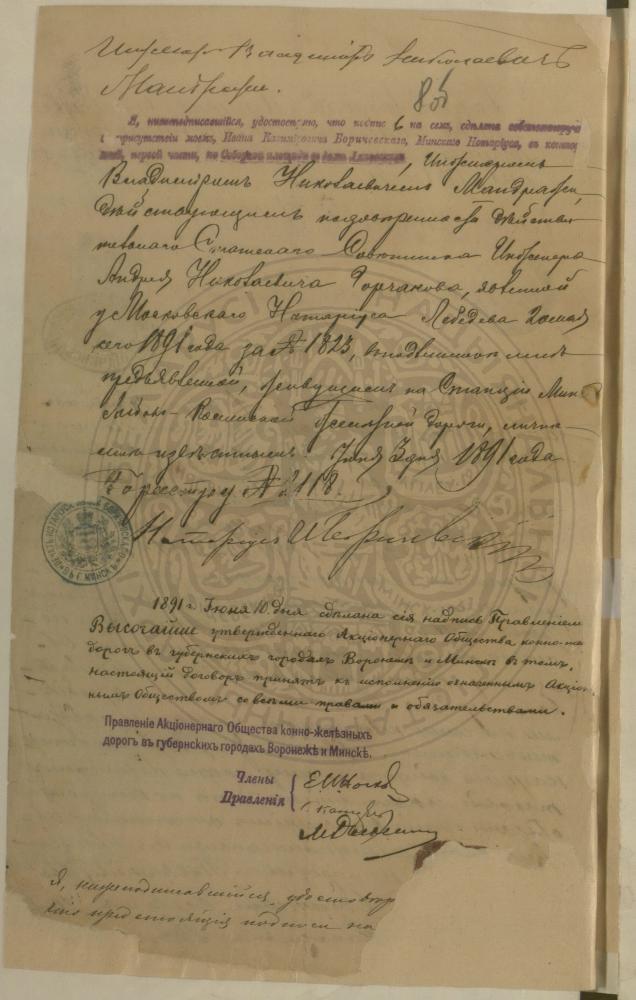 Инженеръ Владиміръ Николаевичъ
Мандражи.
85
Я, нижеподписавшійся, удостовѣряю, что подпись на семъ, сдѣлана собственноручно
въ присутствіи моемъ, Ивана Казиміровича Боричевскаго, Минскаго Нотаріуса, въ конторѣ
моей, первой части, по Соборной площади въ домѣ Инженеромъ
Владиміромъ Николаевичемъ Мандражи,
дѣйствующимъ по довѣренности Дѣйстви-
тельнаго Статскаго Совѣтника Инженера
Андрея Николаевича Горчакова, явленной
у Московскаго Нотаріуса Лебедева 20 мая
сего 1891 года за № 1823, въ подлинномъ мнѣ
предъявленной, живущимъ на Станціи Минскъ
Либаво-Роменской желѣзной дороги, лично
мнѣ извѣстнымъ. Іюня 3 дня 1891 года
По реестру № 2118.
Нотаріусъ И Боричевскій
1891 г. Іюня 10 дня сдѣлана сія надпись Правленіемъ
Высочайше утвержденнаго Акціонернаго Общества конно-же
дорогъ въ губернскихъ городахъ Воронежѣ и Минскѣ въ томъ,
настоящій договоръ принятъ къ исполненію означеннымъ Акціонер
нымъ Обществомъ со всѣми правами и обязательствами.
Правленіе Акціонернаго Общества конно-желѣзныхъ
дорогъ въ губернскихъ городахъ Воронежѣ и Минскѣ.
Члены
Правленія
Я, нижеподписавшійся, удостовѣр
что предстоящія подписи на